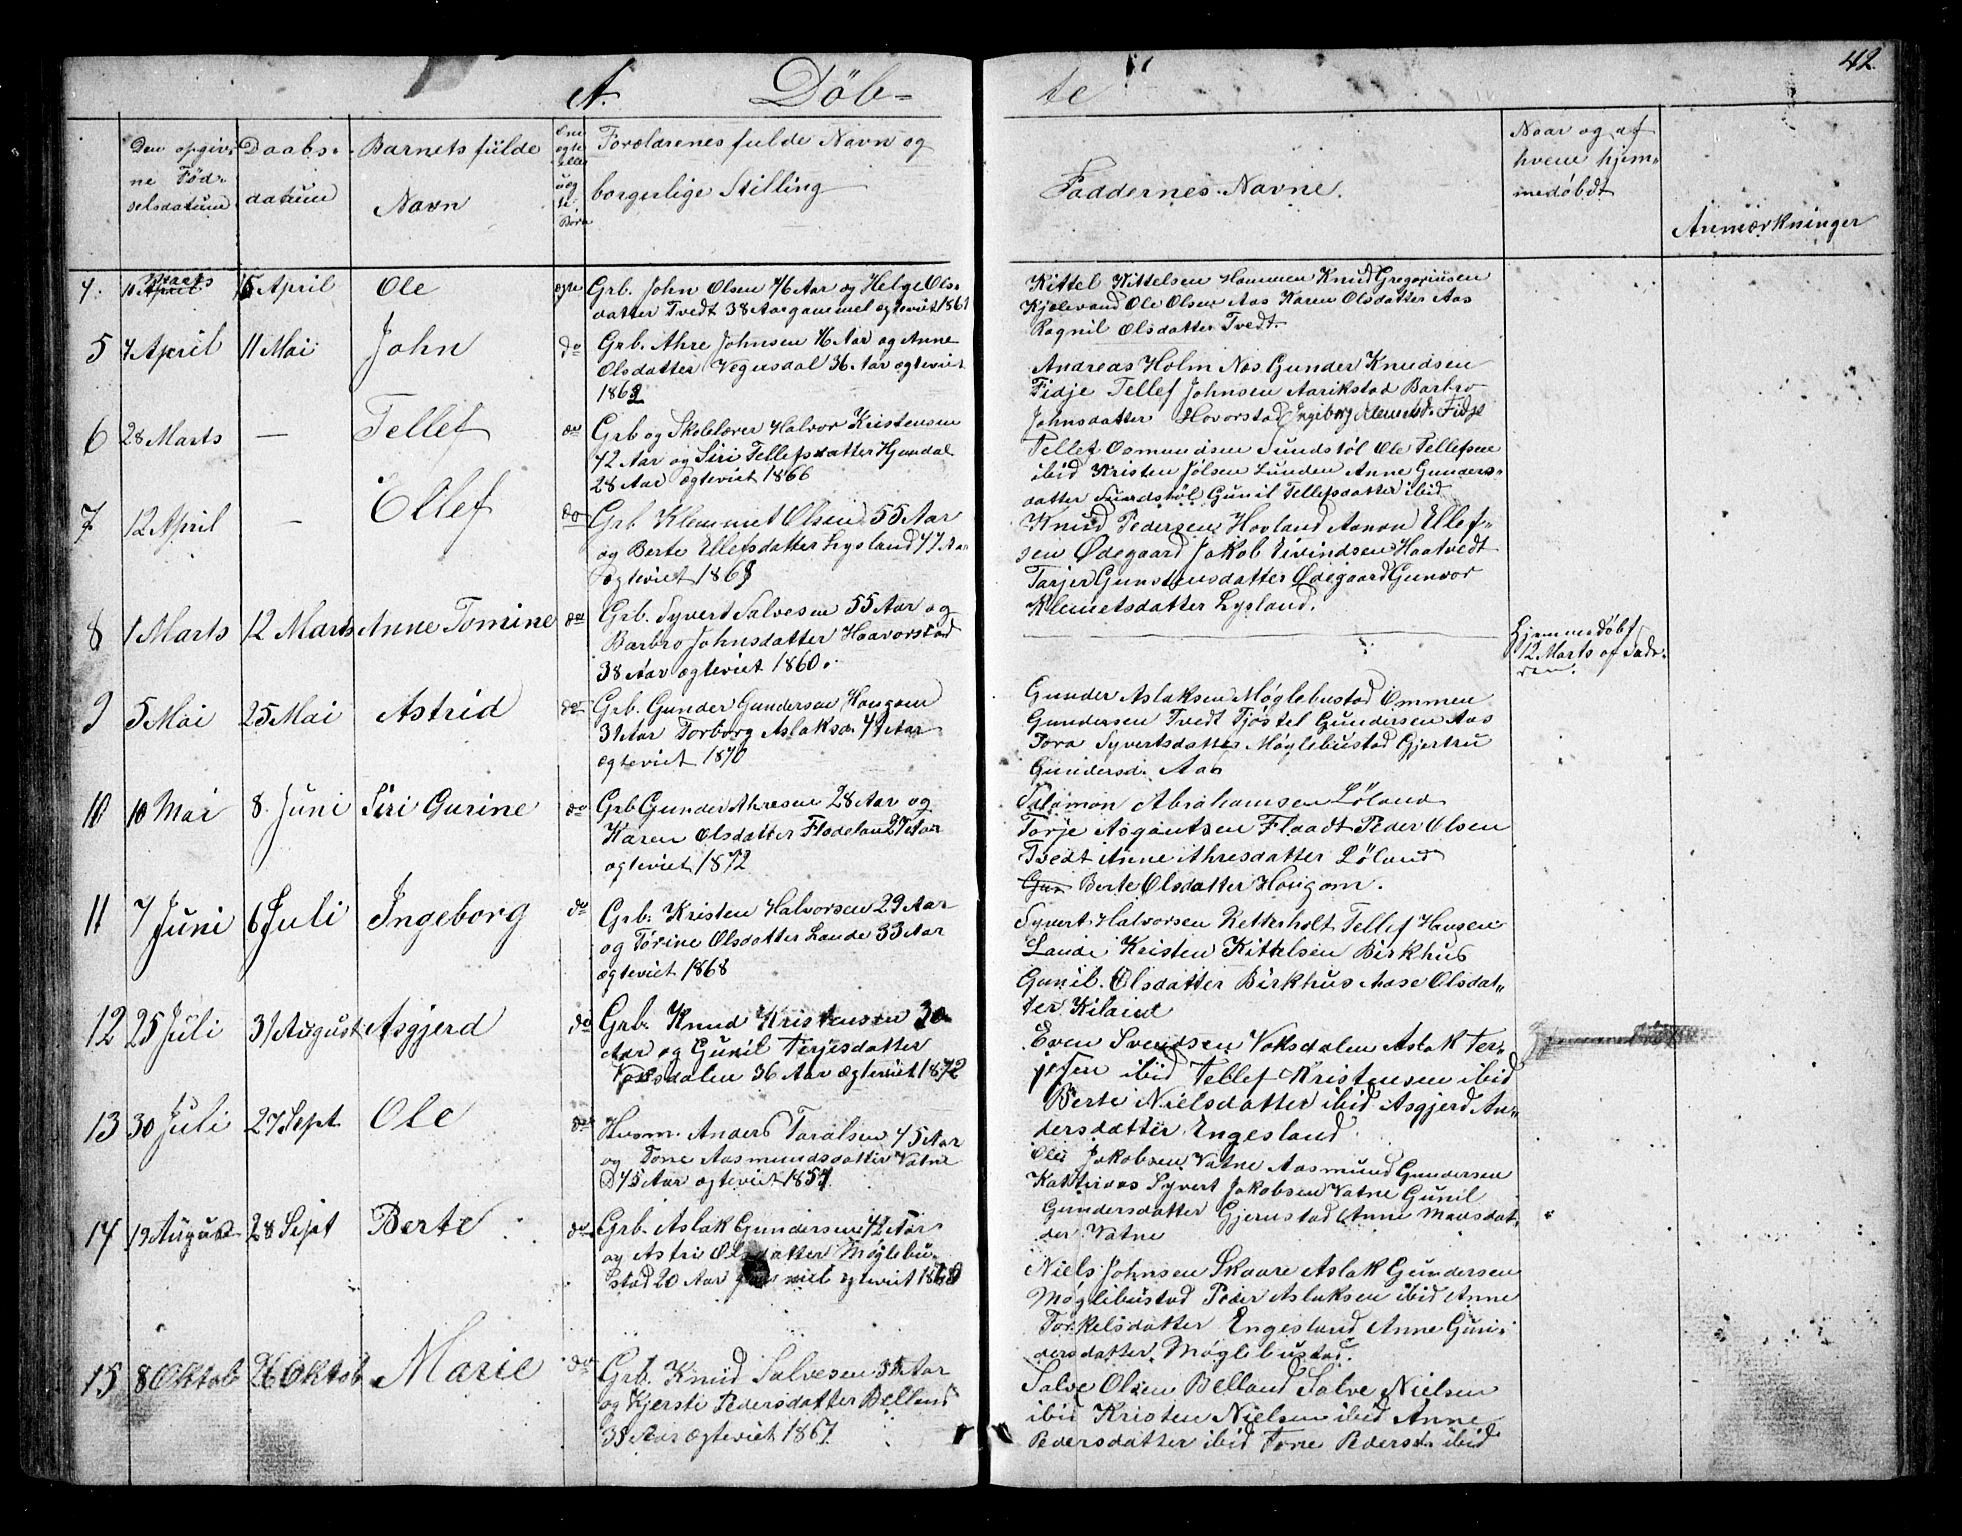 42.
A. Döb- te
Den opgiv-
ne Fød-
selsdatum
Daabs-
datum
Barnets fulde
Navn
Om
ægte
eller
uæg
te
Børn
Forældrenes fulde Navn og
borgerlige Stilling
Faddernes Navne.
Naar og af
hvem hjem-
medøbt
Anmærkninger
4. Marts
April 5 April Ole ægte Grb. John Olsen 46 Aar og Helge Ols-
datter Tvedt 38 Aar gammel ægteviet 1861
Kittel Kittelsen Hammen Knud Gregoriusen
Kjølevand Ole Olsen Aas Karen Olsdatter Aas
Ragnil Olsdatter Tvedt.
5 4 April 11 Mai John do Grb. Ahre Johnsen 46 Aar og Anne
Olsdatter Vegusdal 36 Aar ægteviet
1862
Andreas Holm Nas Gunder Knudsen
Fidje Tellef Johnsen Aarikstad Barbro
Johnsdatter Hovorstad Ingeborg Klemetsd. Fidje
6 28 Marts — Tellef do Grb og Skolelærer Halvor Kristensen
42 Aar og Siri Tellefsdatter Hjemdal
28 Aar Ægteviet 1866
Tellef Osmundsen Sundstøl Ole Tellefsen
ibid Kristen Jølsen Lunden Anne Gunders-
datter Sundstøl Gunil Tellefsdatter ibid
7 12 April — Ellef do Grb Klemmet Olsen 55 Aar
og Berte Ellefsdatter Lysland 47 Aar
ægteviet 1863
Knud Pedersen Hovland Aanon Ellef-
sen Ødegaard Jakob Eivindsen Haatvedt
Tarjer Gunstensdatter Ødegaard Gunvor
Klemetsdatter Lysland.
8 1 Marts 12 Marts Anne Tomine do Grb. Syvert Salvesen 55 Aar og
Barbro Johnsdatter Haavorstad
38 Aar ægteviet 1860.
Hjemmedøbt
12 Marts af Fade-
ren.
9 5 Mai 25 Mai Astrid do Grb. Gunder Gundersen Hougom
31 Aar Torborg Aslaksd. 41 Aar
ægteviet 1870
Gunder Aslaksen Møglebustad Ommen
Gundersen Tvedt Tjøstel Gundersen Aas
Tora Syvertsdatter Møglebustad Gjertru
Gundersd. Aas
10 10 Mai 8. Juni Siri Gurine do Grb Gunder Ahresen 28 Aar og
Karen Olsdatter Flodelan 27 Aar
ægteviet 1872
Salamon Abrahamsen Løland
Torje Asgautsen Flaadt Peder Olsen
Tvedt Anne Ahresdatter Løland
Gun Berte Olsdatter Hougom.
11 7 Juni 6 Juli Ingeborg do Grb. Kristen Halvorsen 29 Aar
og Torine Olsdatter Lande 33 Aar
ægteviet 1868
Syvert Halvorsen Retterholt Tellef Hansen
Lande Kristen Kittelsen Birkhus
Gunil Olsdatter Birkhus Aase Olsdat-
ter Kiland
12 25 Juli 31 August Asgjerd do Grb. Knud Kristensen 30
Aar og Gunil Terjesdatter
Voksdalen 36 Aar ægteviet 1872
Even Svendsen Voksdalen Aslak Ter-
jesen ibid Tellef Kristensen ibid
Berte Nielsdatter ibid Asgjerd An-
dersdatter Engesland
13 30 Juli 27 Sept Ole do Husm. Anders Taralsen 45 Aar
og Tone Aasmundsdatter Vatne
45 Aar ægteviet 1857
Ole Jakobsen Vatne Aasmund Gundersen
Katteraas Syvert Jakobsen Vatne Gunil
Gundersdatter Gjerustad Anne Mansdat-
der Vatne
14 19 August 28 Sept Berte do Grb. Aslak Gundersen 42 Aar
og Astri Olsdatter Møglebu-
stad 20 Aar gammel ægteviet 1870
Niels Johnsen Skaare Aslak Gundersen
Møglebustad Peder Aslaksen ibid Anne
Torkelsdatter Engesland Anne Gun-
dersdatter Møglebustad.
15 8 Oktob 26 Oktob Marie do Grb. Knud Salvesen 35 Aar
og Kjersti Pedersdatter Belland
35 Aar Ægteviet 1867
Salve Olsen Belland Salve Nielsen
ibid Kristen Nielsen ibid Anne
Pedersdatter ibid Tone Pedersd. ibid